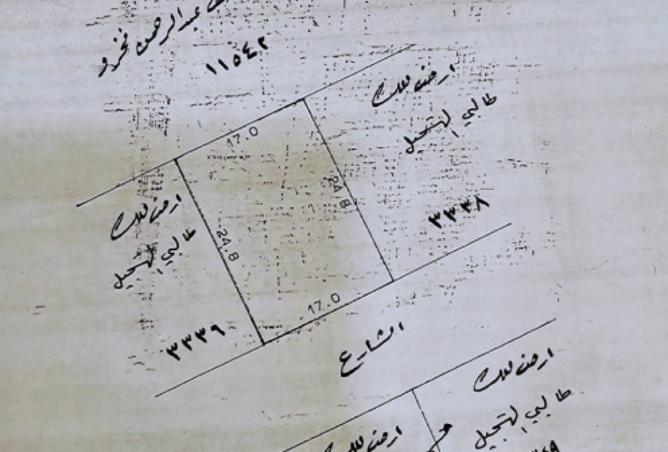 عبدالرحمن فخرو
١١٥٤٢
ارض ملك
طالبي التسجيل
٣٣٣٨
17.0
24.8
24.8
17.0
ارض ملك
طالبي التسجيل
٣٣٣٩
الشارع
ارض ملك
طالبي التسجيل
ارض ملك